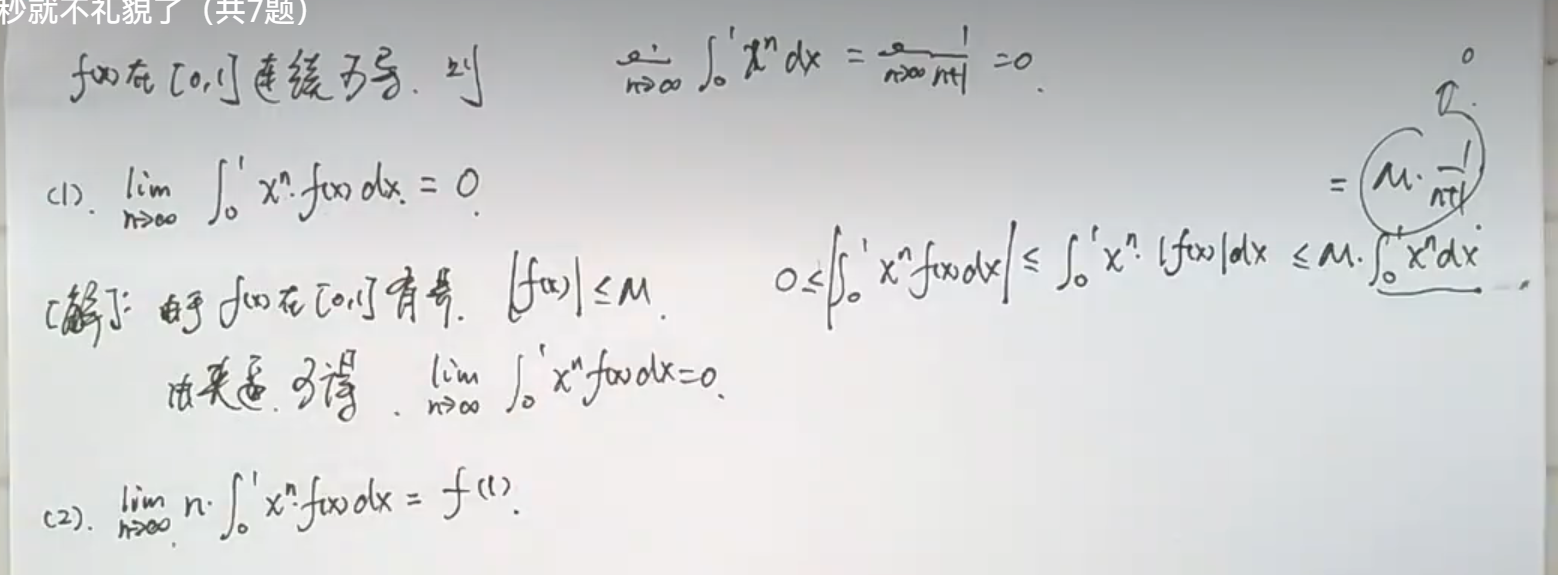 秒就不礼貌了（共7题）
f(x)在[0,1]连续可导. 则
lim n→∞ ∫₀¹ xⁿ dx = lim n→∞ 1/(n+1) = 0.
(1). lim n→∞ ∫₀¹ xⁿ·f(x) dx. = 0.
[解]: 由于 f(x)在[0,1]有界. |f(x)| ≤ M.
0 ≤ |∫₀¹ xⁿ f(x)dx| ≤ ∫₀¹ xⁿ·|f(x)|dx ≤ M·∫₀¹ xⁿdx
= M·1/(n+1)
0
由夹逼. 可得. lim n→∞ ∫₀¹ xⁿ f(x)dx = 0.
(2). lim n→∞ n·∫₀¹ xⁿ·f(x)dx = f(1).